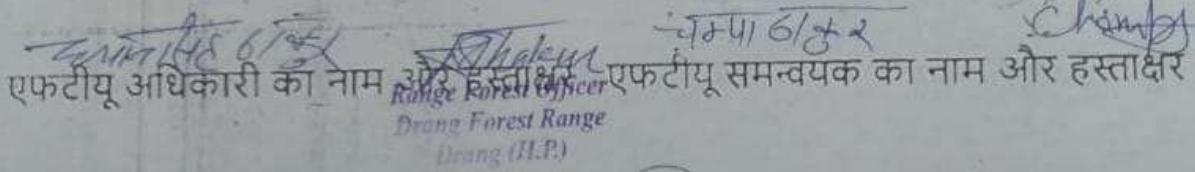 चम्पा ठाकुर
एफटीयू अधिकारी का नाम और हस्ताक्षर एफटीयू समन्वयक का नाम और हस्ताक्षर
Range Forest Officer
Drang Forest Range
Drang (H.P.)